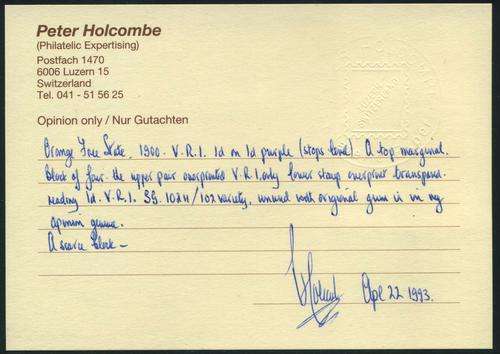 Peter Holcombe
(Philatelic Expertising)
Postfach 1470
6006 Luzern 15
Switzerland
Tel. 041 - 51 56 25
Opinion only / Nur Gutachten
Orange Free State. 1900. V.R.I. 1d on 1d purple (stops level). A top marginal
block of four. the upper pair overprinted V.R.I. only lower stamp overprint
reading 1d. V.R.I. SG. 102 / 102 variety, unused with original gum is in my
opinion genuine.
A scarce block -
Holcombe Apl 22 1993.